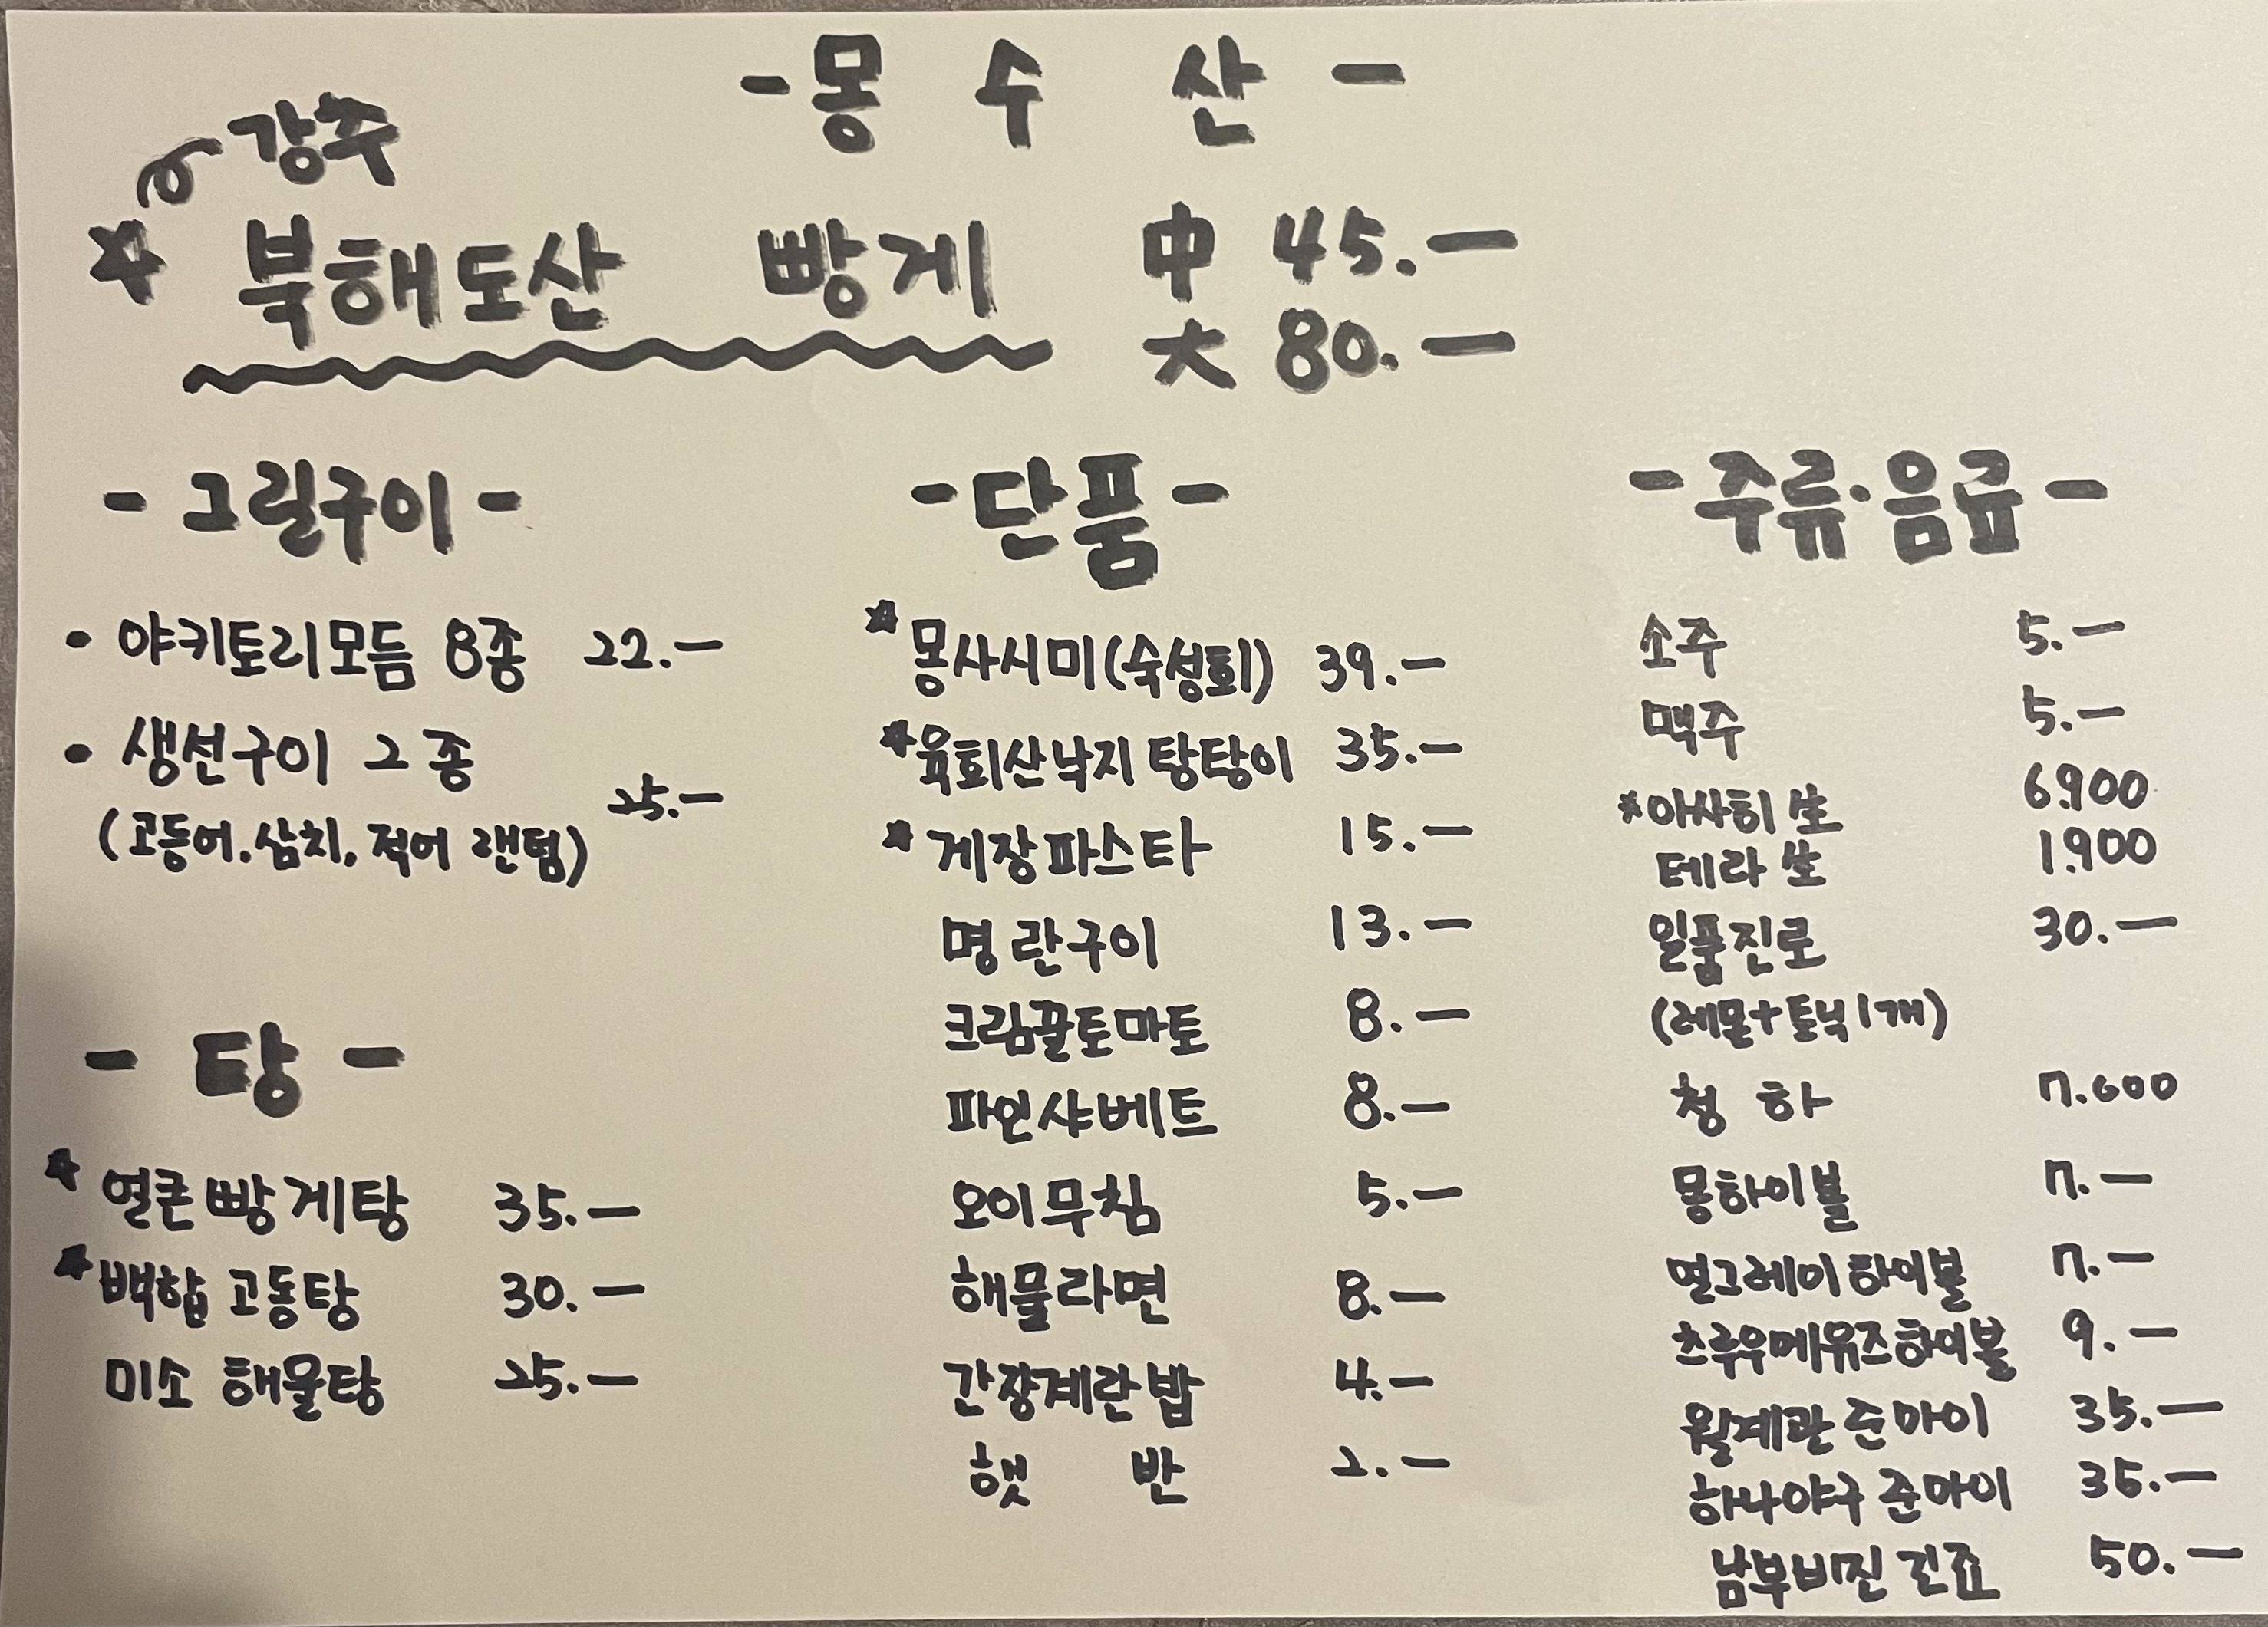 - 몽 수 산 -
강추
☆ 북해도산 빵게 中 45.-
大 80.-
- 그릴구이 -
• 야키토리모듬 8종 22.-
• 생선구이 2종
25.-
(고등어.삼치.적어 랜덤)
- 탕 -
☆ 얼큰빵게탕 35.-
☆ 백합 고동탕 30.-
미소 해물탕 25.-
- 단품 -
☆ 몽사시미(숙성회) 39.-
☆ 육회산낙지 탕탕이 35.-
☆ 게장파스타 15.-
명란구이 13.-
크림꿀토마토 8.-
파인샤베트 8.-
오이무침 5.-
해물라면 8.-
간장계란밥 4.-
햇 반 2.-
- 주류·음료 -
소주 5.-
맥주 5.-
☆ 아사히 生 6.900
테라 生 1.900
일품진로 30.-
(레몬+토닉1개)
청 하 7.000
몽하이볼 7.-
얼그레이하이볼 7.-
츠루우메유즈하이볼 9.-
월계관 준마이 35.-
하나야구 준마이 35.-
남부비진 긴죠 50.-